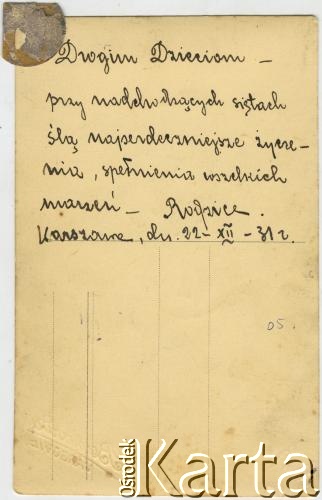 Drogim Dzieciom –
przy nadchodzących świętach
ślą najserdeczniejsze życze-
nia, spełnienia wszelkich
marzeń – Rodzice.
Warszawa, dn. 22 – XII – 31 r.
05.
Ośrodek
Karta